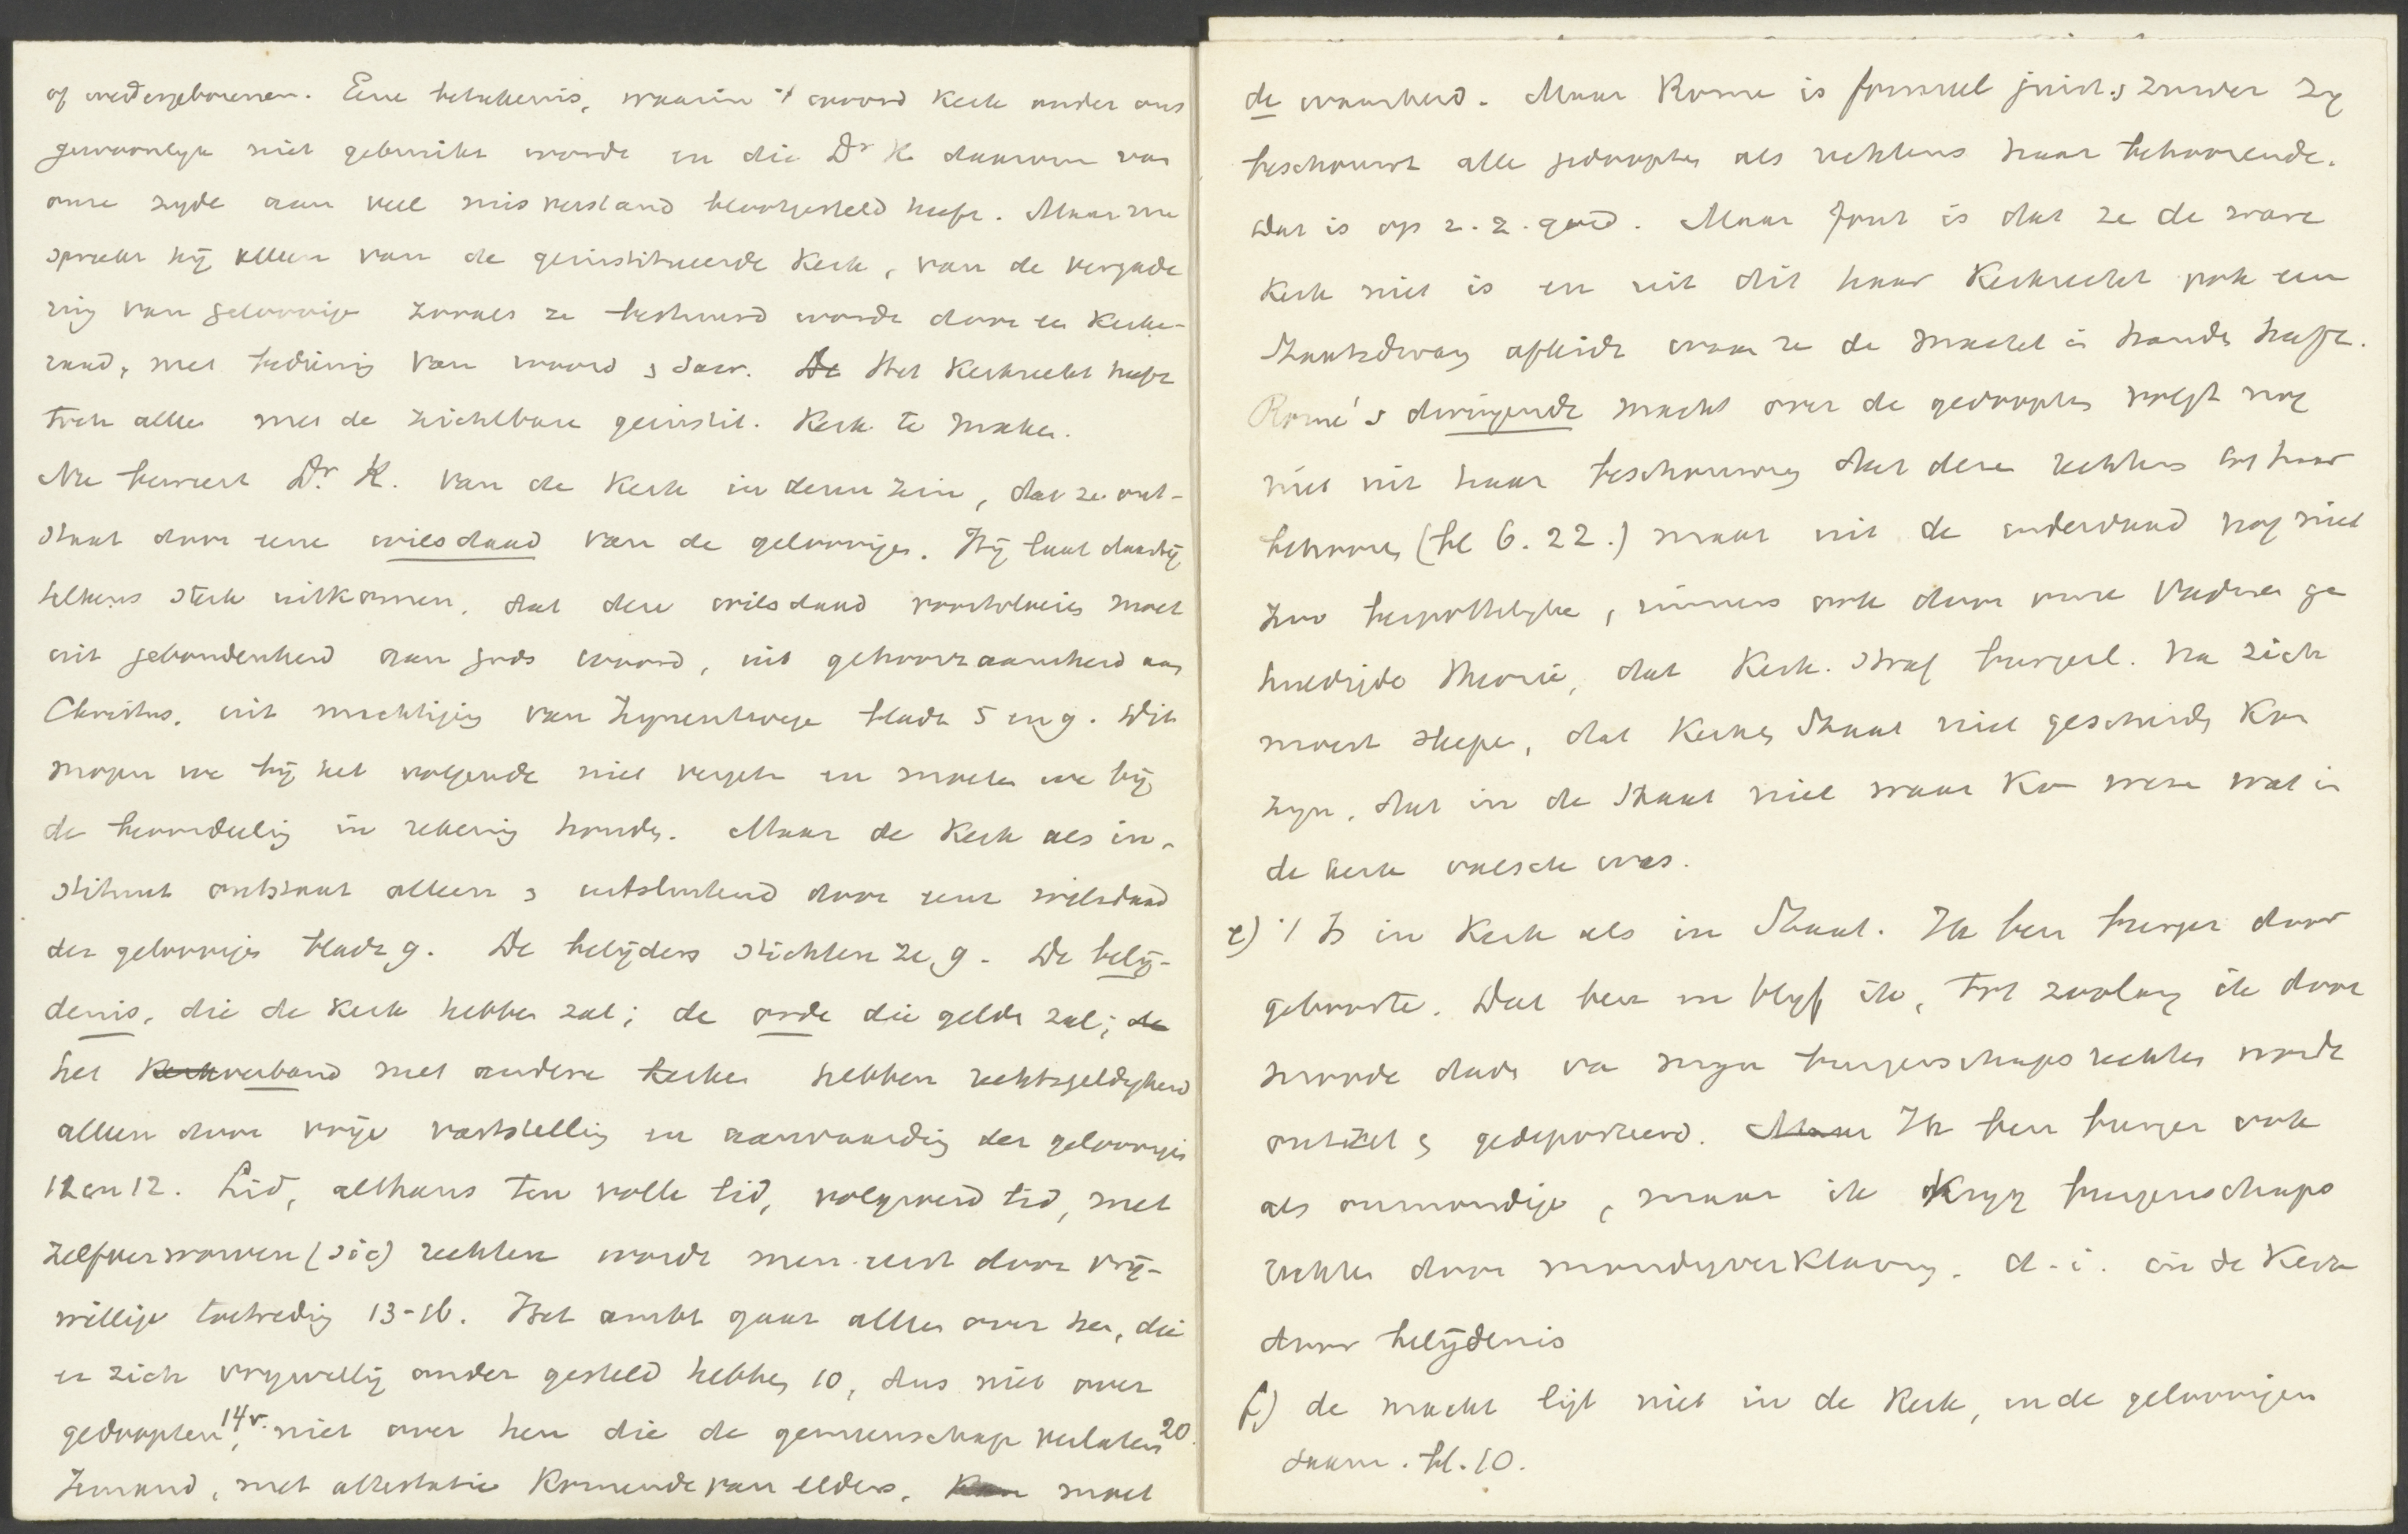 of wedergeborenen. Eene beteekenis, waarin 't woord Kerk onder ons
gewoonlyk niet gebruikt wordt en die Dr K. daarom van
onze zyde aan veel misverstand blootgesteld heeft. Maar nu
spreekt hij alleen van de geinstitueerde Kerk, van de vergade
ring van geloovige zooals ze bestuurd wordt door een Kerke-
raad, met bediening van woord & Sacr. De Het Kerkrecht heeft
toch alles met de zichtbare geinstit. Kerk te maken.
Nu beweert Dr. K. van de Kerk in dezen zin, dat ze ont-
staat door eene wilsdaad van de geloovigen. Hij laat daarbij
telkens sterk uitkomen, dat deze wilsdaad voortvloeien moet
uit gebondenheid aan Gods woord, uit gehoorzaamheid aan
Christus, uit machtiging van Zynentwege bladz 5 en 9. Dit
mogen we bij het volgende niet vergeten en moeten we bij
de beoordeeling in rekening houden. Maar de Kerk als in-
stituut ontstaat alleen & uitsluitend door eene wilsdaad
der geloovigen bladz 9. De belijders stichten ze, 9. De belij-
denis, die de Kerk hebben zal; de orde die gelden zal; de
het Kerkverband met andere Kerken hebben rechtsgeldigheid
alleen door vrije vaststelling en aanvaarding der geloovigen
12 en 12. Lid, althans ten volle lid, volgroeid lid, met
zelfverworven (sic) rechten wordt men eerst door vrij-
willige toetreding 13-16. Het ambt gaat alleen over hen, die
er zich vrywillig onder gesteld hebben 10, dus niet over
gedoopten 14v., niet over hen die de gemeenschap verlaten 20.
Iemand, met attestatie komende van elders, Kan moet
de waarheid. Maar Rome is formeel juist & zuiver Zy
beschouwt alle gedoopten als rechtens haar behoorende.
Dat is op z. z. goed. Maar fout is dat ze de ware
Kerk niet is en uit dit haar Kerkrecht ook een
Staatsdwang afleidt waar ze de macht in handen heeft.
Rome's dwingende macht over de gedoopten volgt nog
niet uit haar beschouwing dat deze rechtens tot haar
behooren (bl 6. 22.) maar uit de inderdaad nog niet
zoo bespottelyke, immers ook door onze Vaderen ge
huldigde theorie, dat Kerk. Straf burgerl. na zich
moest slepen, dat Kerk & Staat niet gescheiden Kon
zyn, dat in de Staat niet waar Kon wezen wat in
de Kerk valsch was.
e) 't Is in Kerk als in Staat. Ik ben burger door
geboorte. Dat ben en blyf ik, tot zoolang ik door
snoode daden van myn burgerschapsrechten wordt
ontzet & gedeporteerd. Maar Ik ben burger ook
als onmondige, maar ik Kryg burgerschaps
rechten door mondigverklaring. d. i. in de Kerk
door belijdenis
f) de macht ligt niet in de Kerk, in de geloovigen
saam. bl. 10.